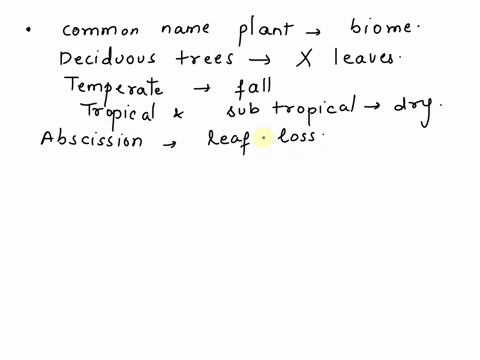 • common name plant → biome.
Deciduous trees → X leaves.
Temperate → fall
Tropical & sub tropical → dry.
Abscission → leaf loss.